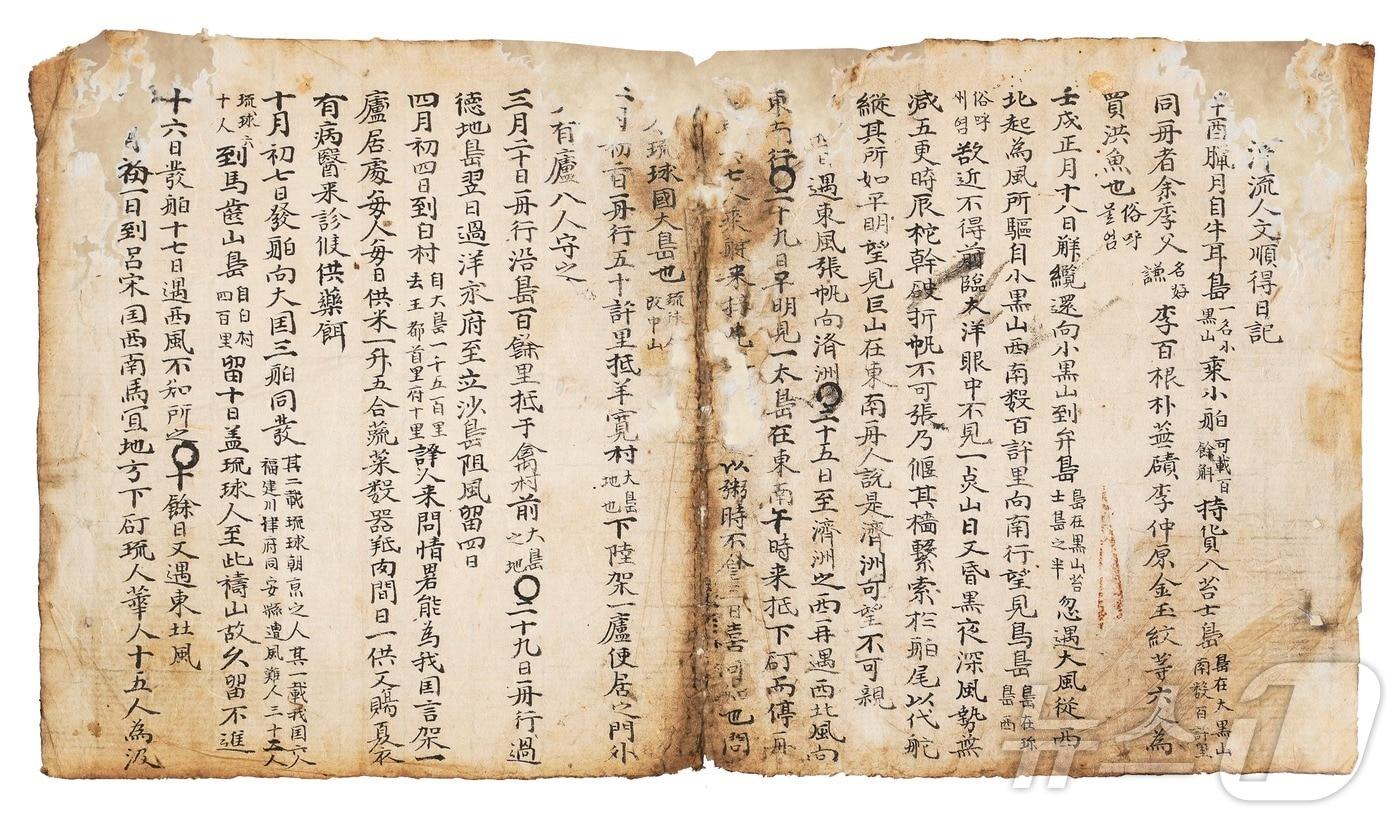 漂流人文順得日記
辛酉臘月自牛耳島一名小黑山乘小舶可載百餘斛持貨八苔士島島在大黑山南數百許里
同舟者余季父名好謙李百根朴無磧李仲原金玉紋等六人為
買洪魚也俗呼홍엄
壬戌正月十八日解纜還向小黑山到弁島島在黑山苔士島之半忽遇大風從西
北起為風所驅自小黑山西南數百許里向南行望見鳥島島在珎島西
俗呼欲近不得前臨大洋眼中不見一点山日又昏黑夜深風勢無
减五更時辰柁幹破折帆不可張乃偃其檣繫索於舶尾以代舵
縱其所如平明望見巨山在東南舟人說是濟洲可望不可親
日遇東風張帆向済洲〇二十五日至濟洲之西再遇西北風向
東南行〇二十九日早明見一大島在東南午時来抵下矴而停舟
七人乘
以粥時不食三日喜可知也問
琉球國大島也
月初二日舟行五十許里抵羊寛村大島地也下陸架一廬使居之門外
有廬八人守之
三月二十日舟行沿島百餘里抵于禽村前大島之地〇二十九日舟行過
德地島翌日過洋
府至立沙島阻風留四日
四月初四日到白村自大島一千五百里去王都首里府十里譯人来問情男能為我国言架一
廬居處每人每日供米一升五合蔬菜数器羝肉間日一供又賜夏衣
有病醫来診候供藥餌
十月初七日發舶向大国三舶同發其二載琉球朝京之人其一載我国六人福建
府同安縣遭風難人三十二人
琉球
十人到馬齒山島自白村四百里留十日盖琉球人至此禱山故久留不進
十六日發舶十七日遇西風不知所之〇十餘日又遇東北風
月初一日到呂宋国西南馬宜地方下矴琉人華人十五人為汲
뉴스1